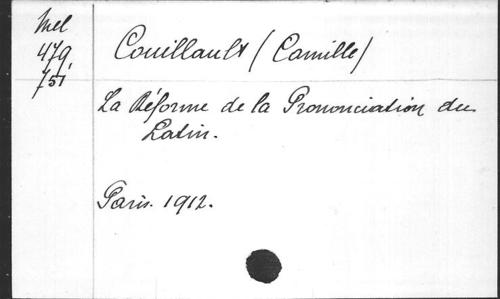 Mel
479,
751
Couillault (Camille)
La Réforme de la Prononciation du
Latin.
Paris. 1912.